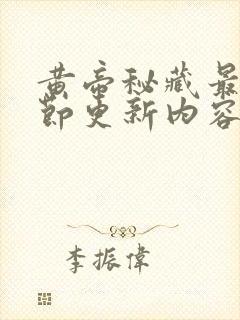 黄帝秘藏最
節更新内容
李振偉